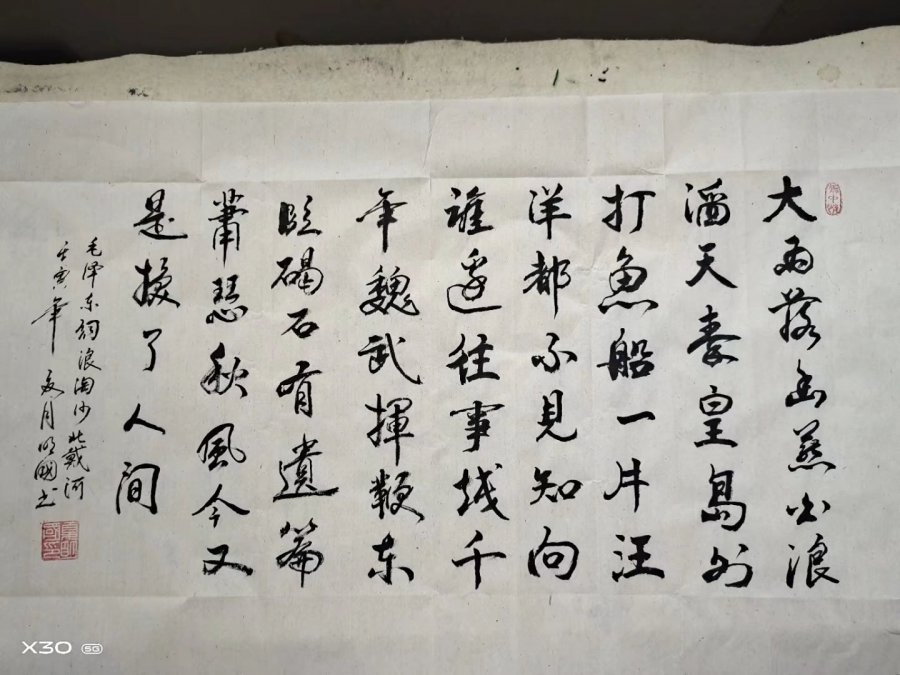 大雨落幽燕白浪
滔天秦皇島外
打魚船一片汪
洋都不見知向
誰邊往事越千
年魏武揮鞭东
临碣石有遺篇
蕭瑟秋風今又
是換了人间
毛泽东詞浪淘沙北戴河
壬寅年夏月明國书
X30 5G